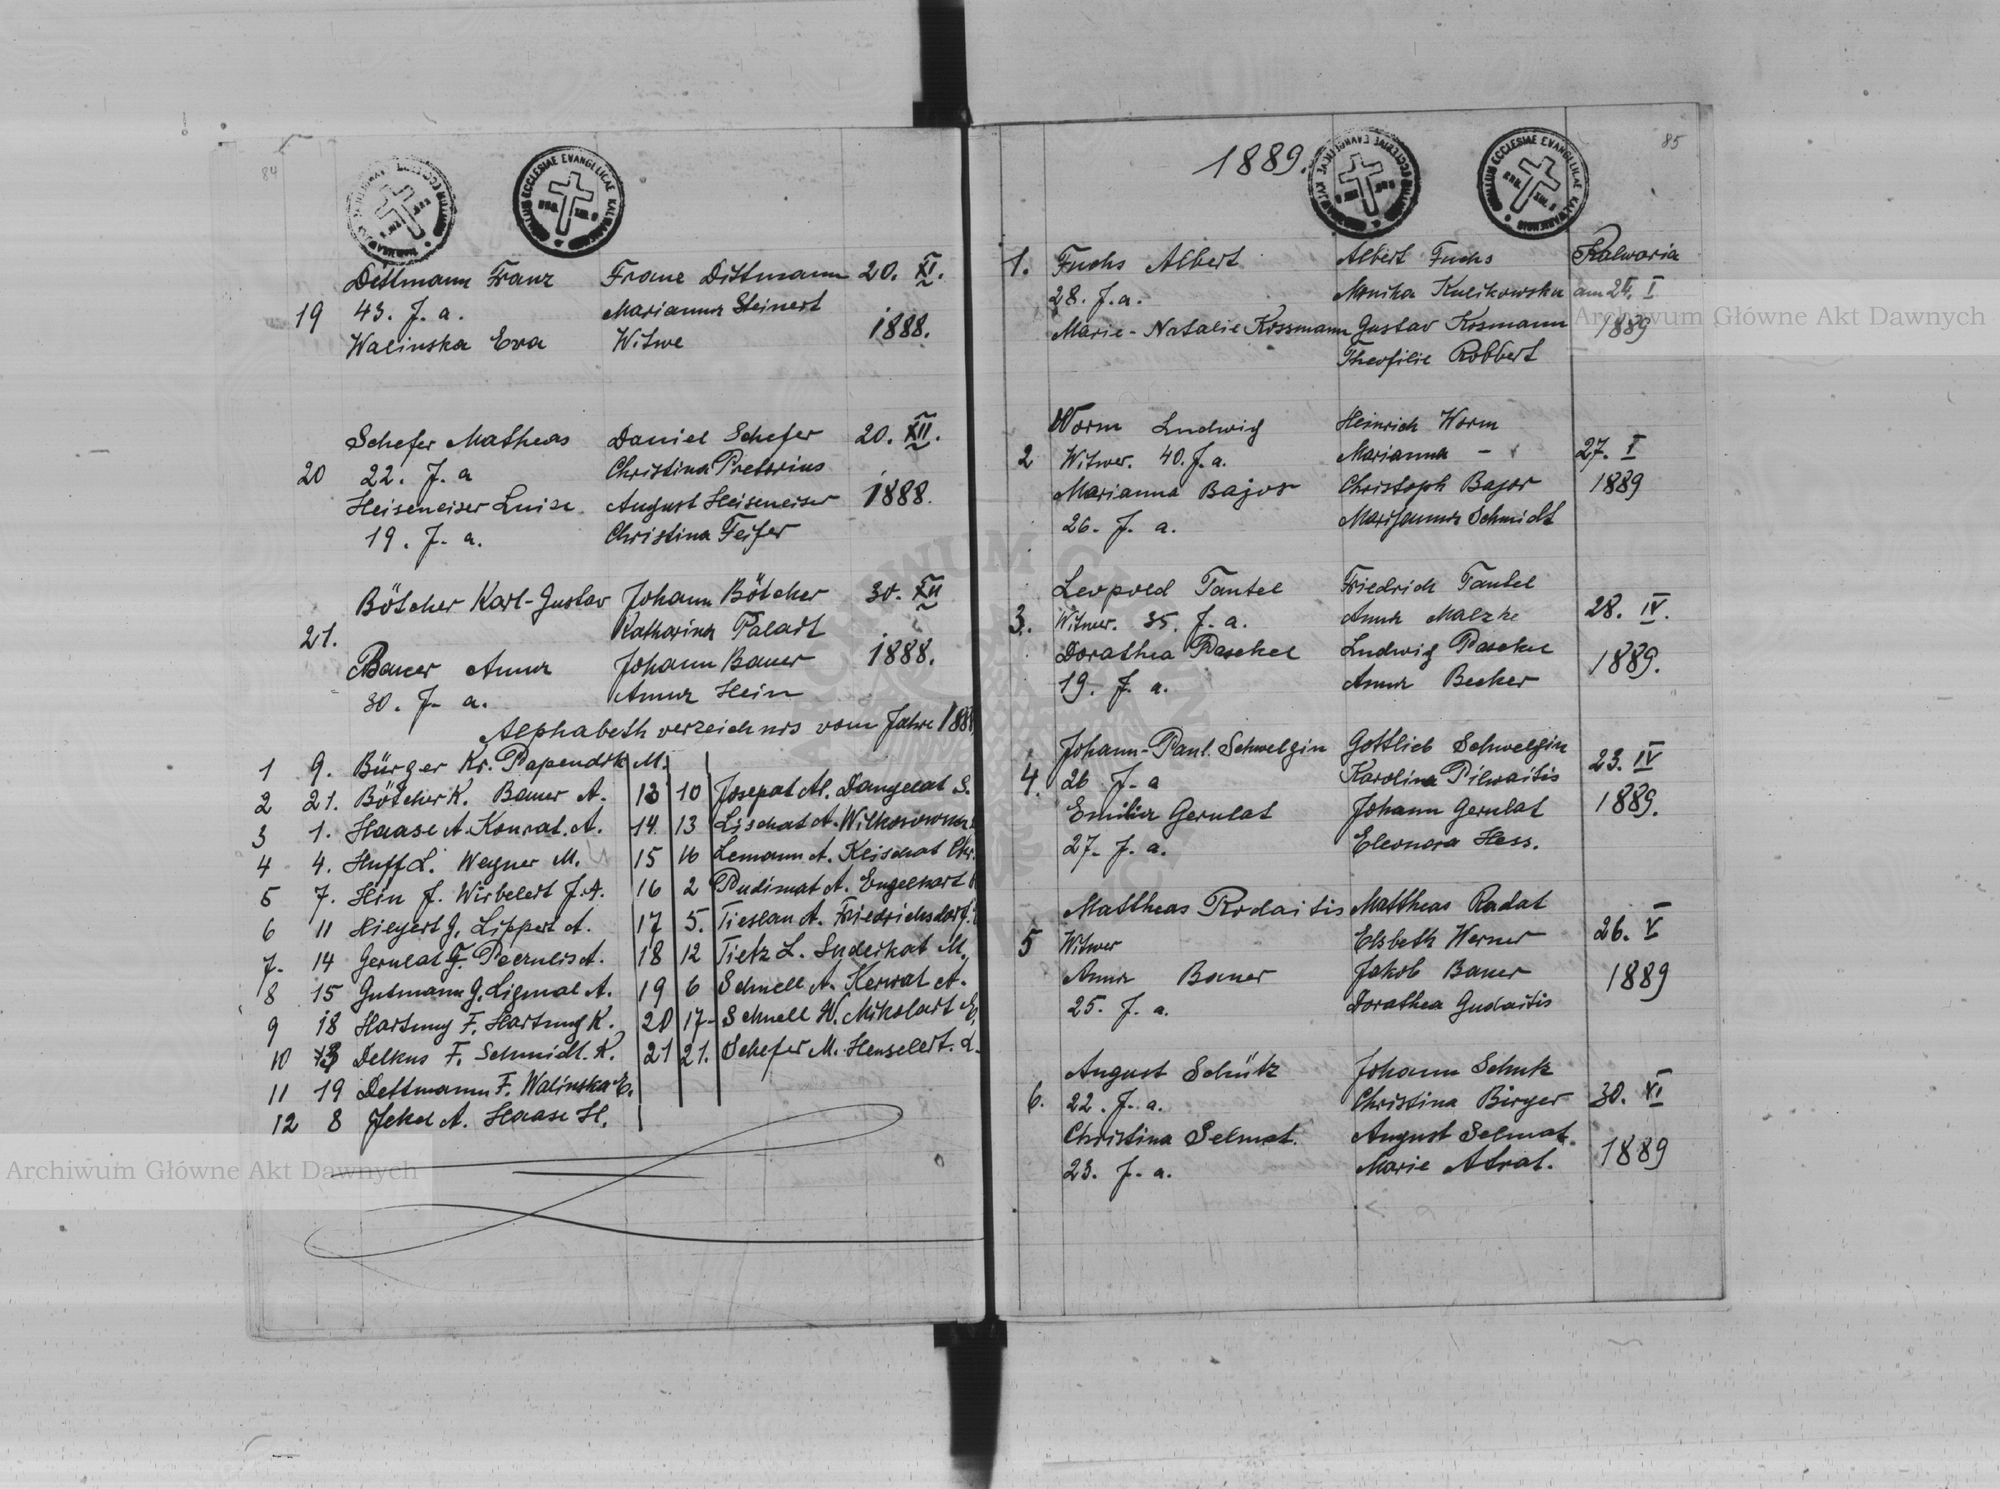 84
Dittmann Franz Franz Dittmann 20. XI.
19 43. J. a. Marianna Steinert 1888.
Walinska Eva Witwe
Schefer Matheas Daniel Schefer 20. XII.
20 22. J. a Christina Pretorius
Heiseneiser Luise August Heiseneiser 1888.
19. J. a. Christina Feifer
Bötcher Karl-Gustav Johann Bötcher 30. XII
21. Katharina Paladt
Bauer Anna Johann Bauer 1888.
30. J. a. Anna Hein
Alphabeth verzeichnis vom Jahre 188
1 9. Bürger Kr. Papendik M.
2 21. Bötcher K. Bauer A.
3 1. Haase A. Konrat. A.
4 4. Huff L. Wegner M.
5 7. Hin J. Wirbelert J. A.
6 11 Hilgert J. Lippert A.
7. 14 Gerulat F. Peerulis A.
8 15 Gutmann G. Ligmal A.
9 18 Hartung F. Hartung K.
10 Delkus F. Schmidt. K.
11 19 Dettmann F. Walinska E.
12 8 Jekel A. Haase H.
13 10 Josepat Al. Dangelat S.
14 13 Lischat A. Wilkosowna
15 16 Lemann A. Keischat Chr.
16 2 Pudimat A. Engelhart
17 5. Tieslau A. Friedrichsdorf.
18 12 Tietz L. Suderkat M.
19 6 Schnell A. Kerwat A.
20 17- Schnell W. Mikolait E.
21 21. Schefer M. Henselert. L.
85
1889.
1. Fuchs Albert Albert Fuchs Kalwaria
28. J. a. Monika Kulikowska am 24. I
Marie-Natalie Kossmann Gustav Kosmann 1889
Theofilie Robbert
Worm Ludwig Heinrich Worm
2 Witwer. 40. J. a. Marianna - 27. I
Marianna Bajor Christoph Bajor 1889
26. J. a. Marijanna Schmidt
Leopold Tautel Friedrich Tautel
3. Witwer. 35. J. a. Anna Malzke 28. IV.
Dorathea Paschel Ludwig Paschel 1889.
19. J. a. Anna Becker
Johann-Paul. Schwelgin Gottlieb Schwelgin
4. 26 J. a Karolina Pilwaitis 23. IV
Emilia Gerulat Johann Gerulat 1889.
27. J. a. Eleonora Hess.
Mattheas Rodaitis Mattheas Radat
5 Witwer Elsbeth Werner 26. V
Anna Bauer Jakob Bauer 1889
25. J. a. Dorathea Gudaitis
August Schütz Johann Schutz
6. 22. J. a. Christina Birger 30. XI
Christina Selmat. August Selmat.
23. J. a. Marie Atrat. 1889
Archiwum Główne Akt Dawnych
Archiwum Główne Akt Dawnych